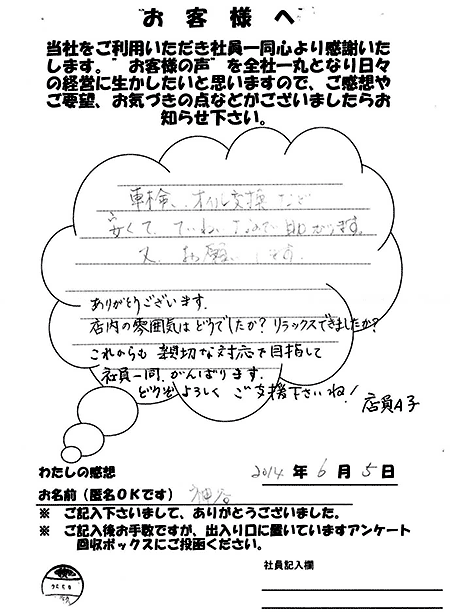 "お客様へ"
当社をご利用いただき社員一同心より感謝いた
します。"お客様の声"を全社一丸となり日々
の経営に生かしたいと思いますので、ご感想や
ご要望、お気づきの点などがございましたらお
知らせ下さい。
車検、オイル交換など
安くて、ていねいなので助かります。
又、お願いします。
ありがとうございます。
店内の雰囲気はどうでしたか?リラックスできましたか?
これからも親切な対応で目指して
社員一同、がんばります。
どうぞよろしくご支援下さいね!
店員A子
わたしの感想
2014年6月5日
お名前(匿名OKです)
※ ご記入下さいまして、ありがとうございました。
※ ご記入後お手数ですが、出入り口に置いていますアンケート
回収ボックスにご投函ください。
社員記入欄